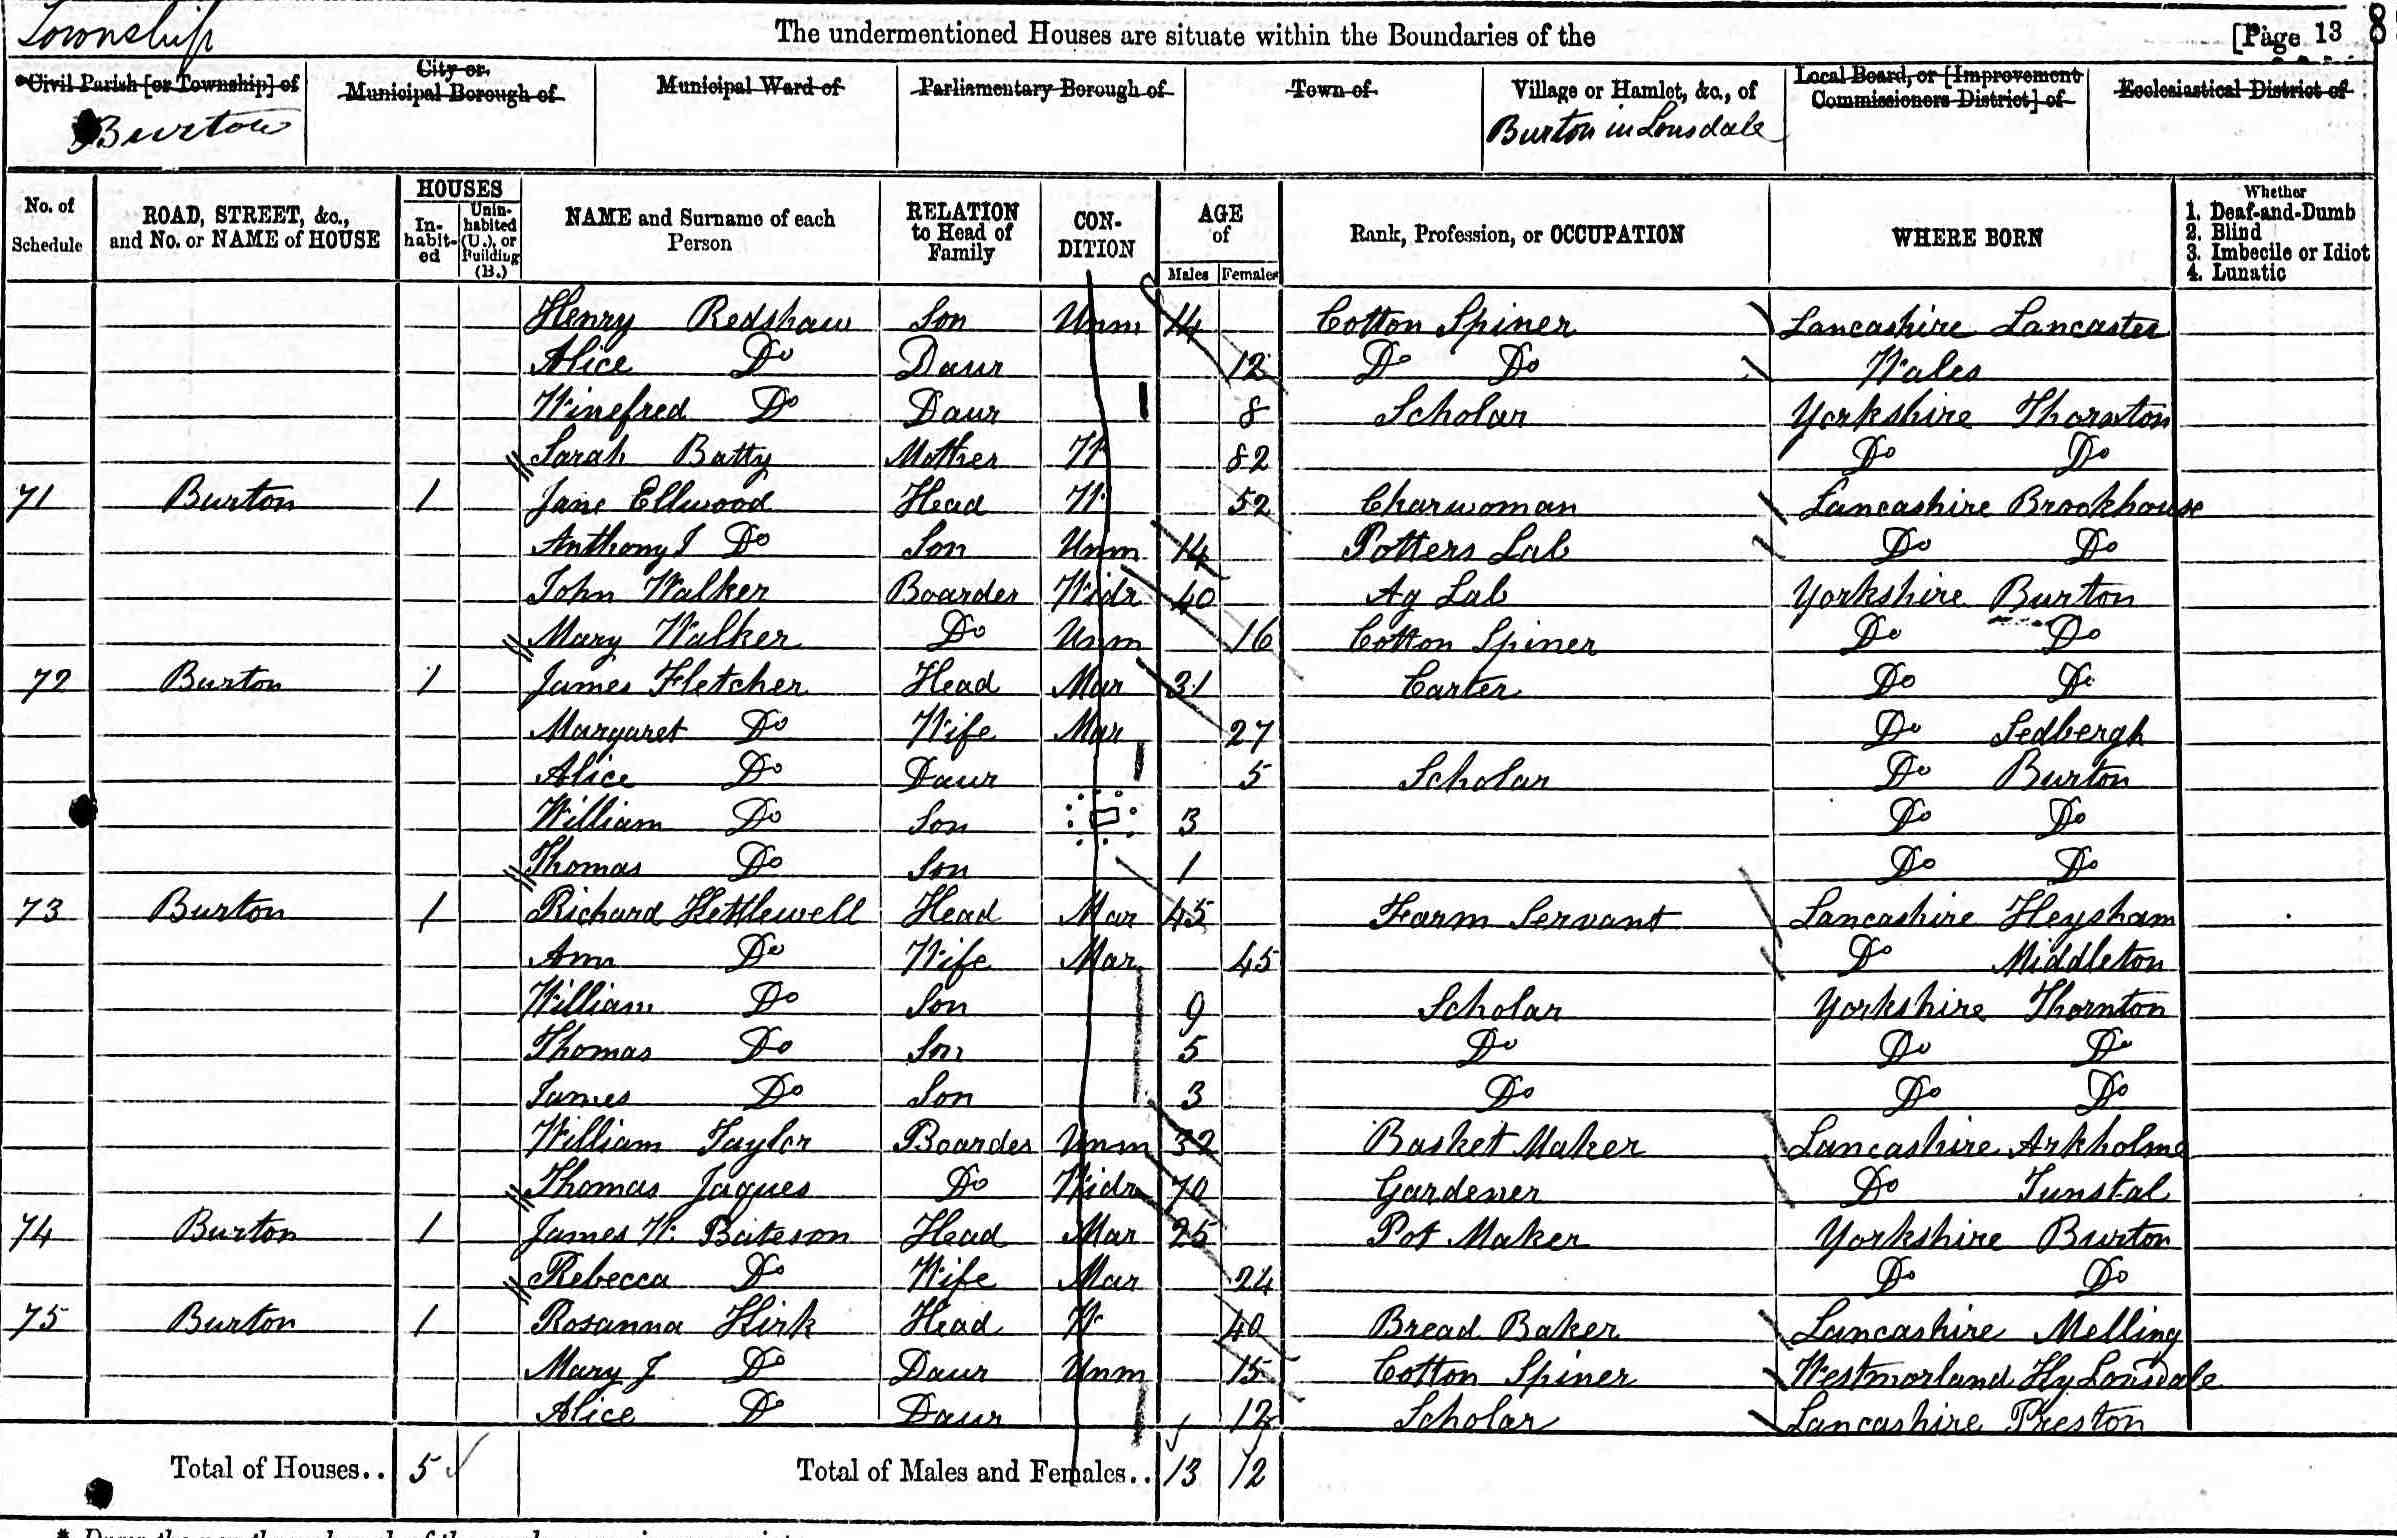 Township
The undermentioned Houses are situate within the Boundaries of the [Page 13 8
*Civil Parish [or Township] of City or Municipal Borough of Municipal Ward of Parliamentary Borough of Town of Village or Hamlet, &c., of Local Board, or [Improvement Commissioners District] of Ecclesiastical District of
Burton Burton in Lonsdale
No. of Schedule ROAD, STREET, &c., and No. or NAME of HOUSE HOUSES Inhabited Uninhabited (U.), or Building (B.) NAME and Surname of each Person RELATION to Head of Family CONDITION AGE of Males Females Rank, Profession, or OCCUPATION WHERE BORN Whether 1. Deaf-and-Dumb 2. Blind 3. Imbecile or Idiot 4. Lunatic
Henry Redshaw Son Unm 14 Cotton Spiner Lancashire Lancaster
Alice Do Daur 12 Do Do Wales
Winefred Do Daur 8 Scholar Yorkshire Thornton
Sarah Batty Mother W 82 Do Do
71 Burton 1 Jane Ellwood Head W 52 Charwoman Lancashire Brookhouse
Anthony J Do Son Unm 14 Potters Lab Do Do
John Walker Boarder Widr 40 Ag Lab Yorkshire Burton
Mary Walker Do Unm 16 Cotton Spiner Do Do
72 Burton 1 James Fletcher Head Mar 31 Carter Do Do
Margaret Do Wife Mar 27 Do Sedbergh
Alice Do Daur 5 Scholar Do Burton
William Do Son 3 Do Do
Thomas Do Son 1 Do Do
73 Burton 1 Richard Kettlewell Head Mar 45 Farm Servant Lancashire Heysham
Ann Do Wife Mar 45 Do Middleton
William Do Son 9 Scholar Yorkshire Thornton
Thomas Do Son 5 Do Do Do
James Do Son 3 Do Do Do
William Taylor Boarder Unm 32 Basket Maker Lancashire Arkholme
Thomas Jaques Do Widr 70 Gardener Do Tunstal
74 Burton 1 James W. Bateson Head Mar 25 Pot Maker Yorkshire Burton
Rebecca Do Wife Mar 24 Do Do
75 Burton 1 Rosanna Kirk Head W 40 Bread Baker Lancashire Melling
Mary J Do Daur Unm 15 Cotton Spiner Westmorland Ky Lonsdale
Alice Do Daur 12 Scholar Lancashire Preston
Total of Houses.. 5 Total of Males and Females.. 13 12